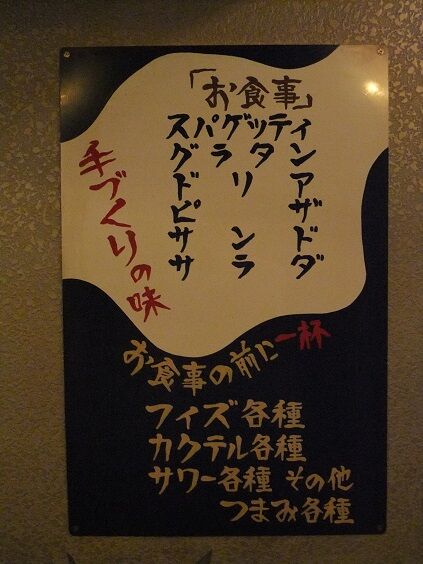 「お食事」
スパゲッティ
グラタン
ドリア
ピザ
サンド
サラダ
手づくりの味
お食事の前に一杯
フィズ各種
カクテル各種
サワー各種 その他
つまみ各種